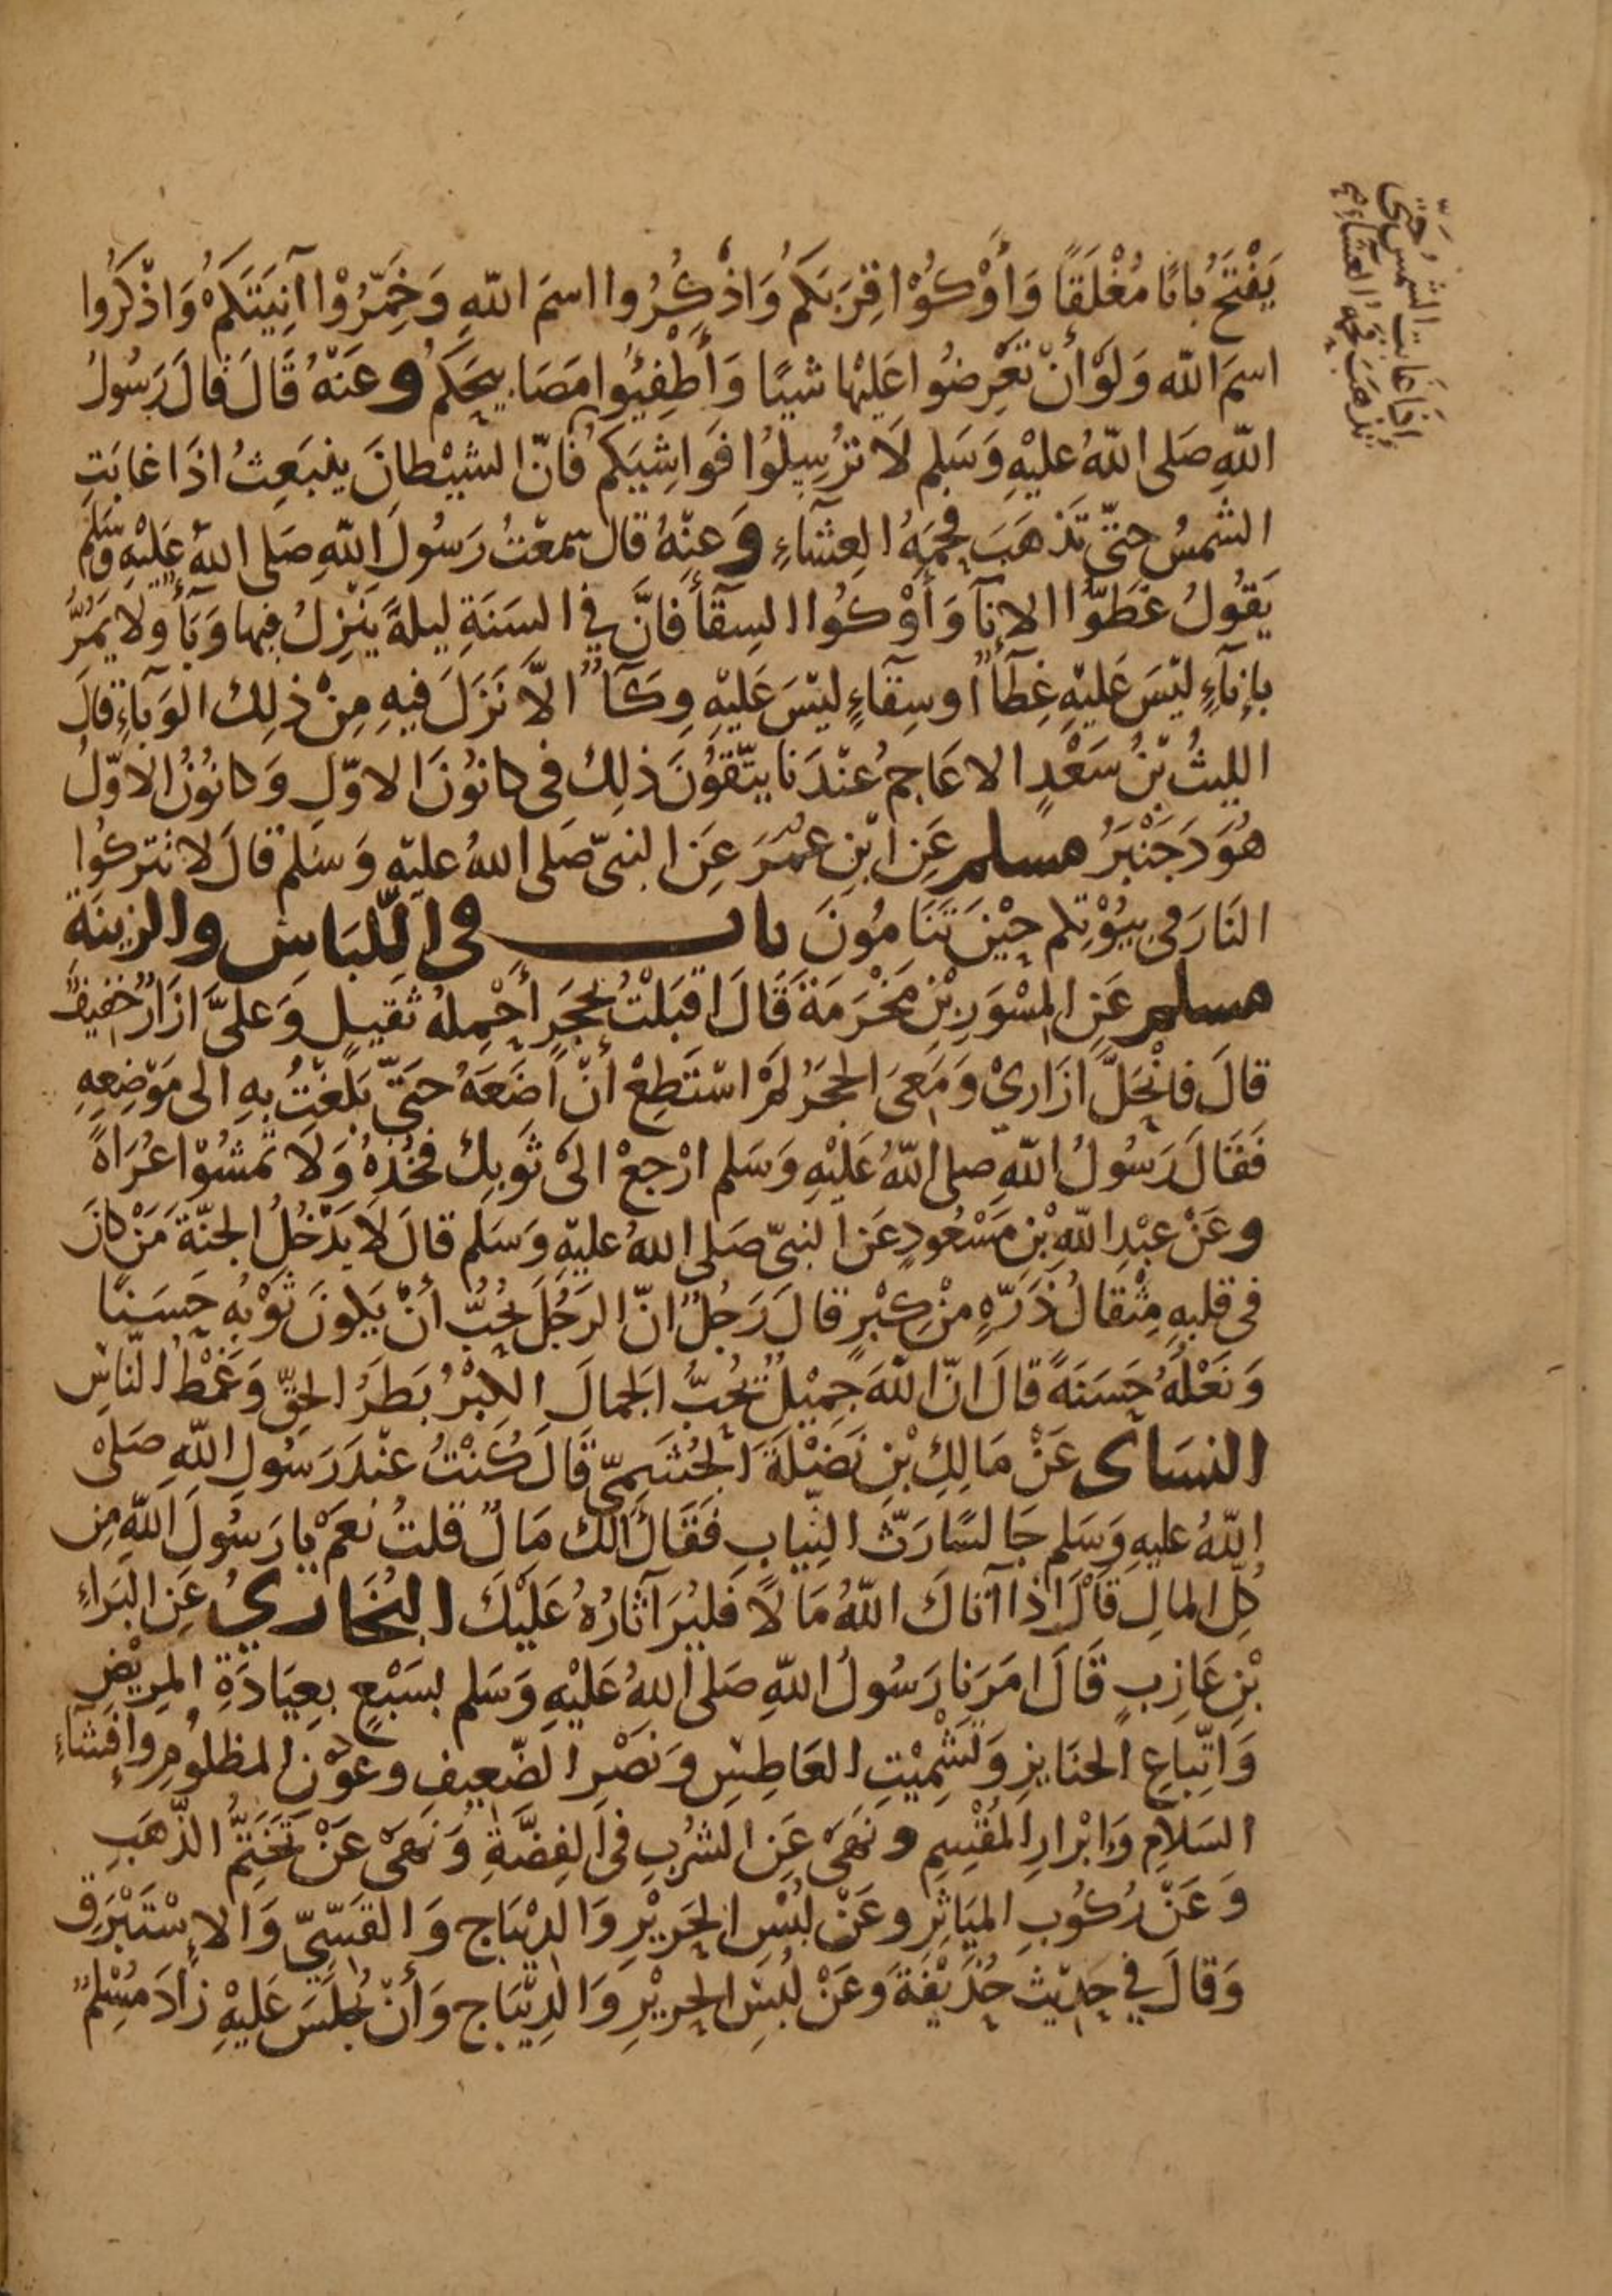 يَفْتَحُ بابًا مُغْلَقًا وَأَوْكُوْا قِرَبَكُمْ وَاذْكُرُوا اسمَ اللّهِ وَخَمِّرُوْا آنِيَتَكُمْ وَاذْكُرُوا
اسمَ اللّه وَلَوْ أنْ تَعْرِضُوا عَلَيْها شيئًا وَأَطْفِئُوا مَصَابيحَكُمْ وعَنْهُ قَالَ قالَ رَسُولُ
اللّهِ صَلى اللّهُ عليْهِ وَسَلم لَا تُرْسِلُوُا فَوَاشِيَكُم فَانّ الشيْطانَ ينبَعِثُ اذَا غابَتِ
الشمسُ حتىّ تَذهَبَ فحمَةُ العِشَآءِ وَعنْهُ قال سمعْتُ رَسُولَ اللّهِ صَلى اللّهُ عَليْهِ وَسَلم
يَقُولُ غَطّوُا الانآ وَأَوْكُوا السِقآ فانَّ في السَنَةِ ليلةً يَنْزِلُ فيها وَبَأٌ ولا يَمُرُّ
بإنآءٍ ليْسَ عَليْهِ غِطآءٌ أو سِقآءٍ ليْسَ عَليْهِ وِكَآءٌ الاّ نَزَلَ فيهِ مِنْ ذلِك الوَبآءِ قالَ
الليثُ بْنُ سَعْدٍ الاعَاجمُ عنْدَنا يتّقوُنَ ذلِكَ فى كانوُنَ الاوّلِ وَكانوُنُ الاوّلُ
هُوَ دَجَنْبَرُ مسلم عَنِ ابْنِ عُمَرَ عَنِ النبىّ صَلى اللهُ عليْهِ وَسَلمْ قالَ لا تتركُوا
النَارَ فى بيُوْتِكم حيْنَ تَنَامُونَ باب فى اللّبَاسِ والزينَةِ
مسلم عَنِ المسْوَرِ بْنِ مَخْرَمَةَ قَالَ اقبَلْتُ بحَجَرٍ أحْمِلهُ ثَقيلٍ وَعَلىَّ ازَارٌ خفيفٌ
قالَ فانْحَلَّ ازَارِيْ وَمَعىَ الحجَرُ لمْ اسْتَطِعْ أنْ اضَعَهُ حتىّ بَلغْتُ بهِ الى مَوْضِعِهِ
فَقَالَ رَسُولُ اللّهِ صلى اللّهُ عَليْهِ وَسَلم ارْجعْ الىَ ثَوبِكَ فخُذهُ وَلَا تمشُوْا عُرَاةً
وعَنْ عبْدِ اللّهِ بْنِ مَسْعُودٍ عَنِ النبىّ صَلى اللهُ عليْهِ وَسَلم قالَ لَا يَدْخُلُ الجنّةَ مَنْ كانَ
فى قلبهِ مِثْقالُ ذَرّةٍ مِنْ كِبْرٍ قالَ رَجُلٌ انّ الرَجُلَ يُحبُّ أنْ يَكونَ ثَوْبُهِ حَسَنًا
وَنَعْلُهُ حَسَنَةً قالَ انّ اللّهَ جَمِيْلٌ يُحبُّ الجمالَ الكِبْرُ بَطَرُ الحقّ وَغَمْطُ النّاسِ
النسَاى عَنْ مَالِكِ بْنِ نَضْلَةَ الجُشَمِيّ قَالَ كُنْتُ عنْدَ رَسُولِ اللّهِ صَلىْ
اللّهُ عليهِ وَسَلم جَالسًا رَثّ الثيابِ فَقَالَ الكَ مَالٌ قلتُ نَعَمْ يا رَسُولَ اللّهِ مِن
كُلّ المالِ قالَ اذا آتاكَ اللّهُ مَالًا فَليُرَ آثارُهُ عَلَيْكَ البُخَاري عَنِ البَراءِ
بْنِ عَازِبٍ قَالَ امَرَنا رَسُولُ اللّهِ صَلى اللهُ عَليْهِ وَسَلم بسَبْعٍ بعِيَادَةِ المرِيْضِ
وَاتّباعِ الجنَايزِ وَتَشْمِيْتِ العَاطِسِ وَنَصْرِ الضّعيفِ وعَوْنِ المظلُومِ وإفشَآءِ
السَلامِ وَابْرارِ المُقْسِمِ ونَهَى عَنِ الشُرْبِ فى الفِضَّةِ وَنَهَىَ عَنْ تَخَتّمُ الذّهَبِ
وَعَنْ رُكُوبِ المَيَاثِرِ وعَنْ لُبْسِ الحَرِيْرِ وَالدِيْبَاجِ وَالقَسّيّ وَالاسْتَبْرَقِ
وَقالَ في حَدِيْث حُذَيْفَةَ وَعَنْ لُبْسِ الحرِيْرِ وَالدِيْبَاجِ وَأنْ يُجلَسَ عَليْهِ زادَ مُسْلمٌ
اذا غابت الشمسُ حَتّى
تذهَبَ فحمةُ العشاءِ صح